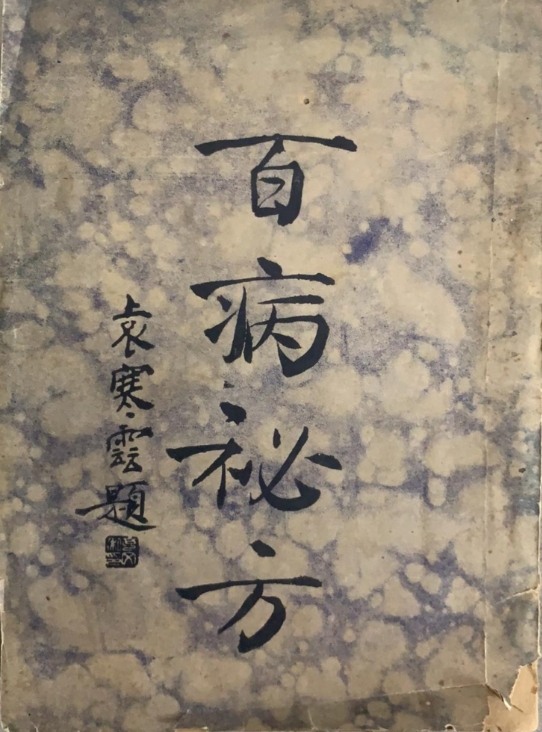 百病祕方
袁寒雲題